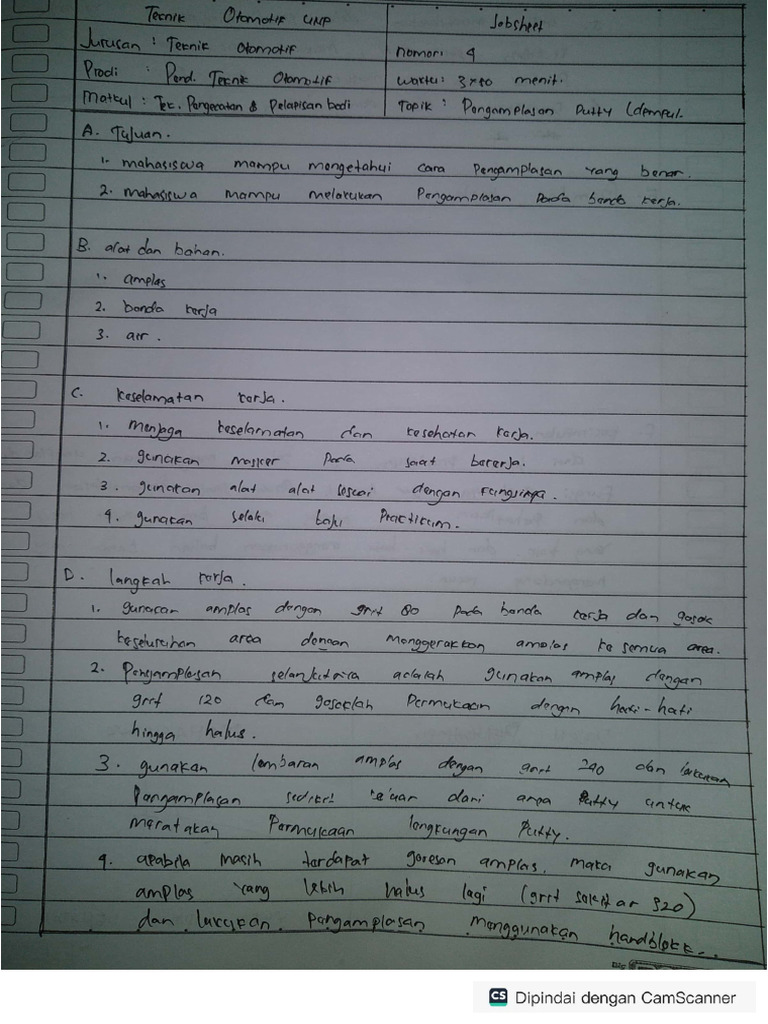 Teknik Otomotif UNP
Jobsheet
Jurusan : Teknik Otomotif
nomor : 4
Prodi : Pend. Teknik Otomotif
waktu : 3x40 menit.
Matkul : Tek. Pengecatan & Pelapisan bodi
Topik : Pengamplasan Putty (dempul.
A. Tujuan.
1. mahasiswa mampu mengetahui cara Pengamplasan yang benar.
2. mahasiswa mampu melakukan Pengamplasan Pada benda kerja.
B. alat dan bahan.
1. amplas
2. benda kerja
3. air.
C. keselamatan kerja.
1. menjaga keselamatan dan kesehatan kerja.
2. gunakan masker Pada saat bekerja.
3. gunakan alat alat sesuai dengan fungsinya.
4. gunakan selalu baju Practicum.
D. langkah kerja.
1. gunakan amplas dengan grit 80 Pada benda kerja dan gosok
keseluruhan area dengan menggerakkan amplas ke semua area.
2. Pengamplasan selanjutnya adalah gunakan amplas dengan
grit 120 dan gosoklah Permukaan dengan hati-hati
hingga halus.
3. gunakan lembaran amplas dengan grit 240 dan lakukan
Pengamplasan sedikit keluar dari area Putty untuk
meratakan Permukaan lengkungan Putty.
4. apabila masih terdapat goresan amplas, maka gunakan
amplas yang lebih halus lagi (grit sekitar 320)
dan lakukan Pengamplasan menggunakan handblokk..
CS Dipindai dengan CamScanner